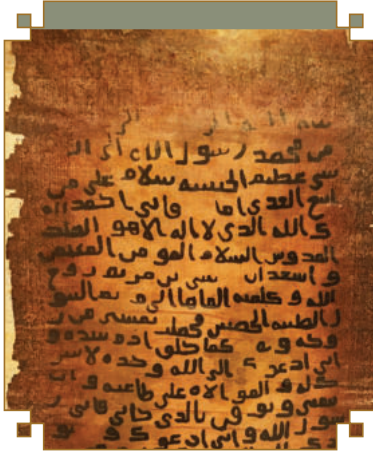 بسم الله
من محمد رسول الله الى
شي عظيم الحبشه سلام على من
اتبع الهدى اما فاني احمد
ك الله الذي لا اله الا هو الملك
القدوس السلام المومن المهيمن
و اشهد ان عيسى بن مريم روح
الله و كلمته القاها الى البتو
ل الطيبه الحصينه فحملت من ر
وحه و كما خلق ادم بيده و
اني ادعوك الى الله وحده لا شر
يك له و الموالاه على طاعته و ان
تتبعني و بالذي جاني فاني ر
سول الله و اني ادعوك و